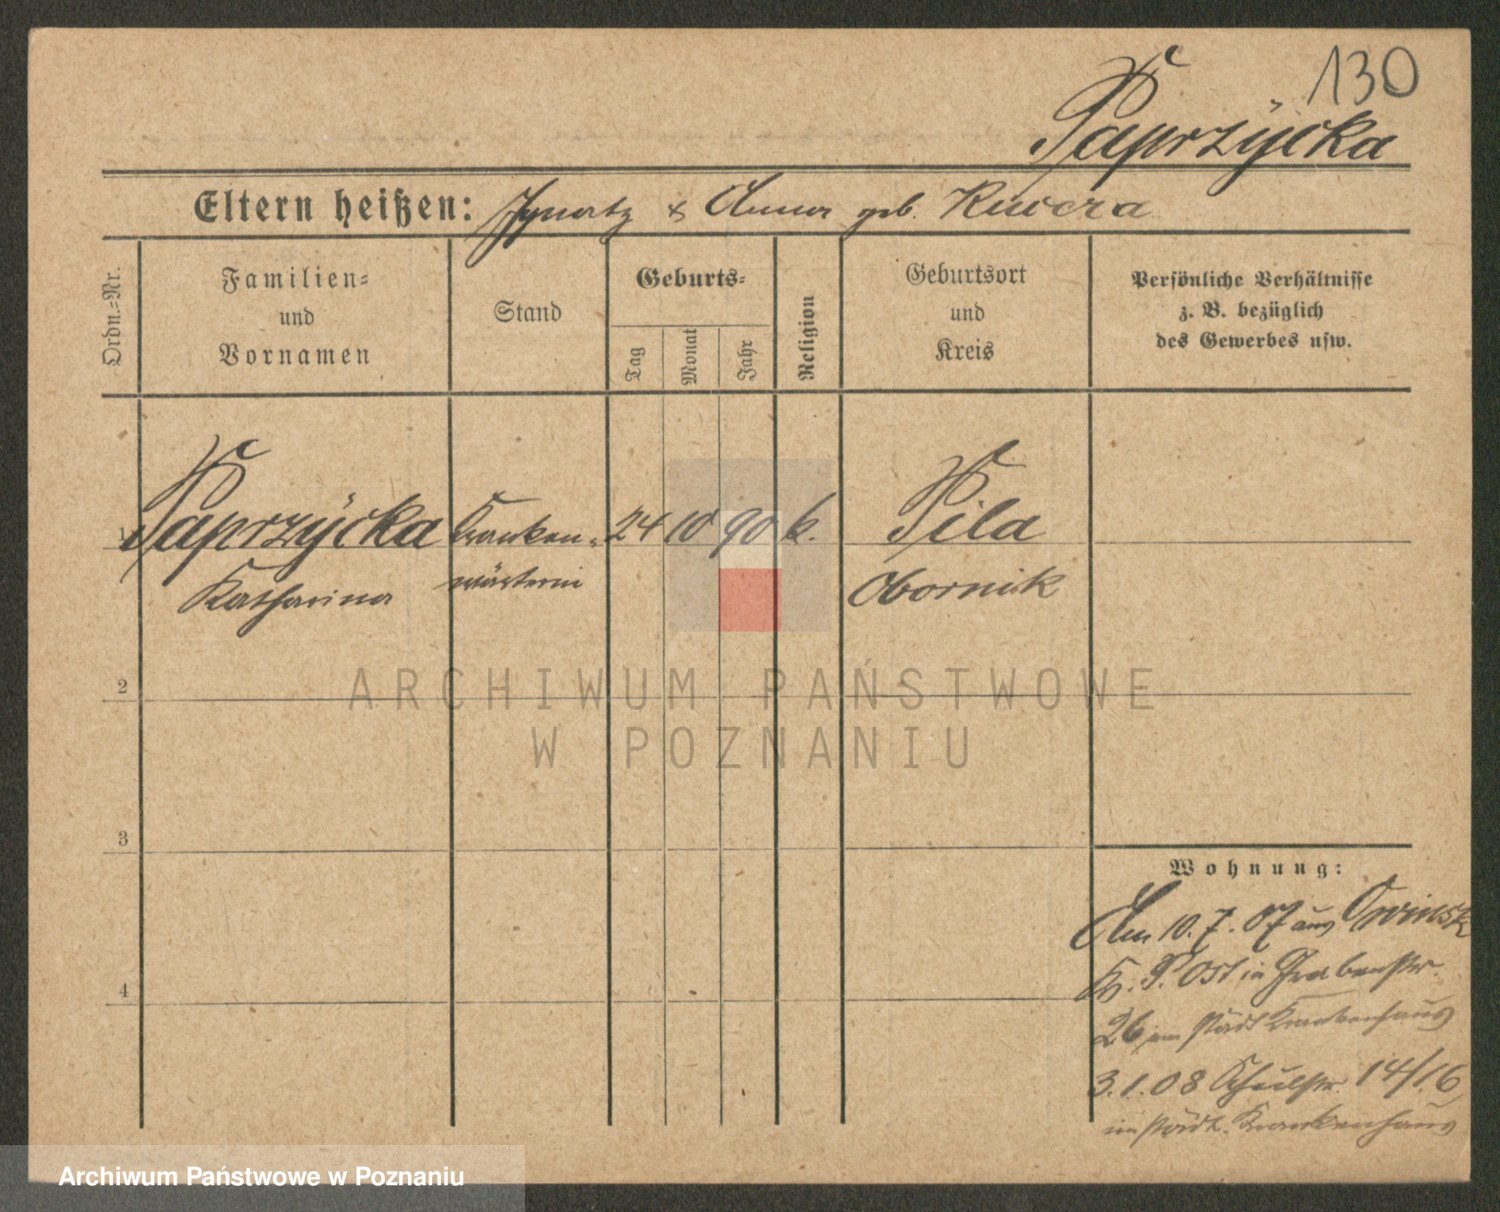 130
Paprzÿcka
Eltern heißen: Ignatz & Anna geb. Kucera
Ordn.-Nr.
Familien-
und
Vornamen
Stand
Geburts-
Tag
Monat
Jahr
Religion
Geburtsort
und
Kreis
Persönliche Verhältnisse
z. B. bezüglich
des Gewerbes usw.
1 Paprzÿcka Kranken- 24 10 90 k. Pila
Katharina wärterin Obornik
2
3
4
Wohnung:
Am 10. 7. 07 aus Owinsk
Kr. P. Ost in Grabenstr.
26 im städt Krankenhaus
3. 1. 08 Schulstr. 14/16
im städt. Krankenhaus
ARCHIWUM PAŃSTWOWE
W POZNANIU
Archiwum Państwowe w Poznaniu